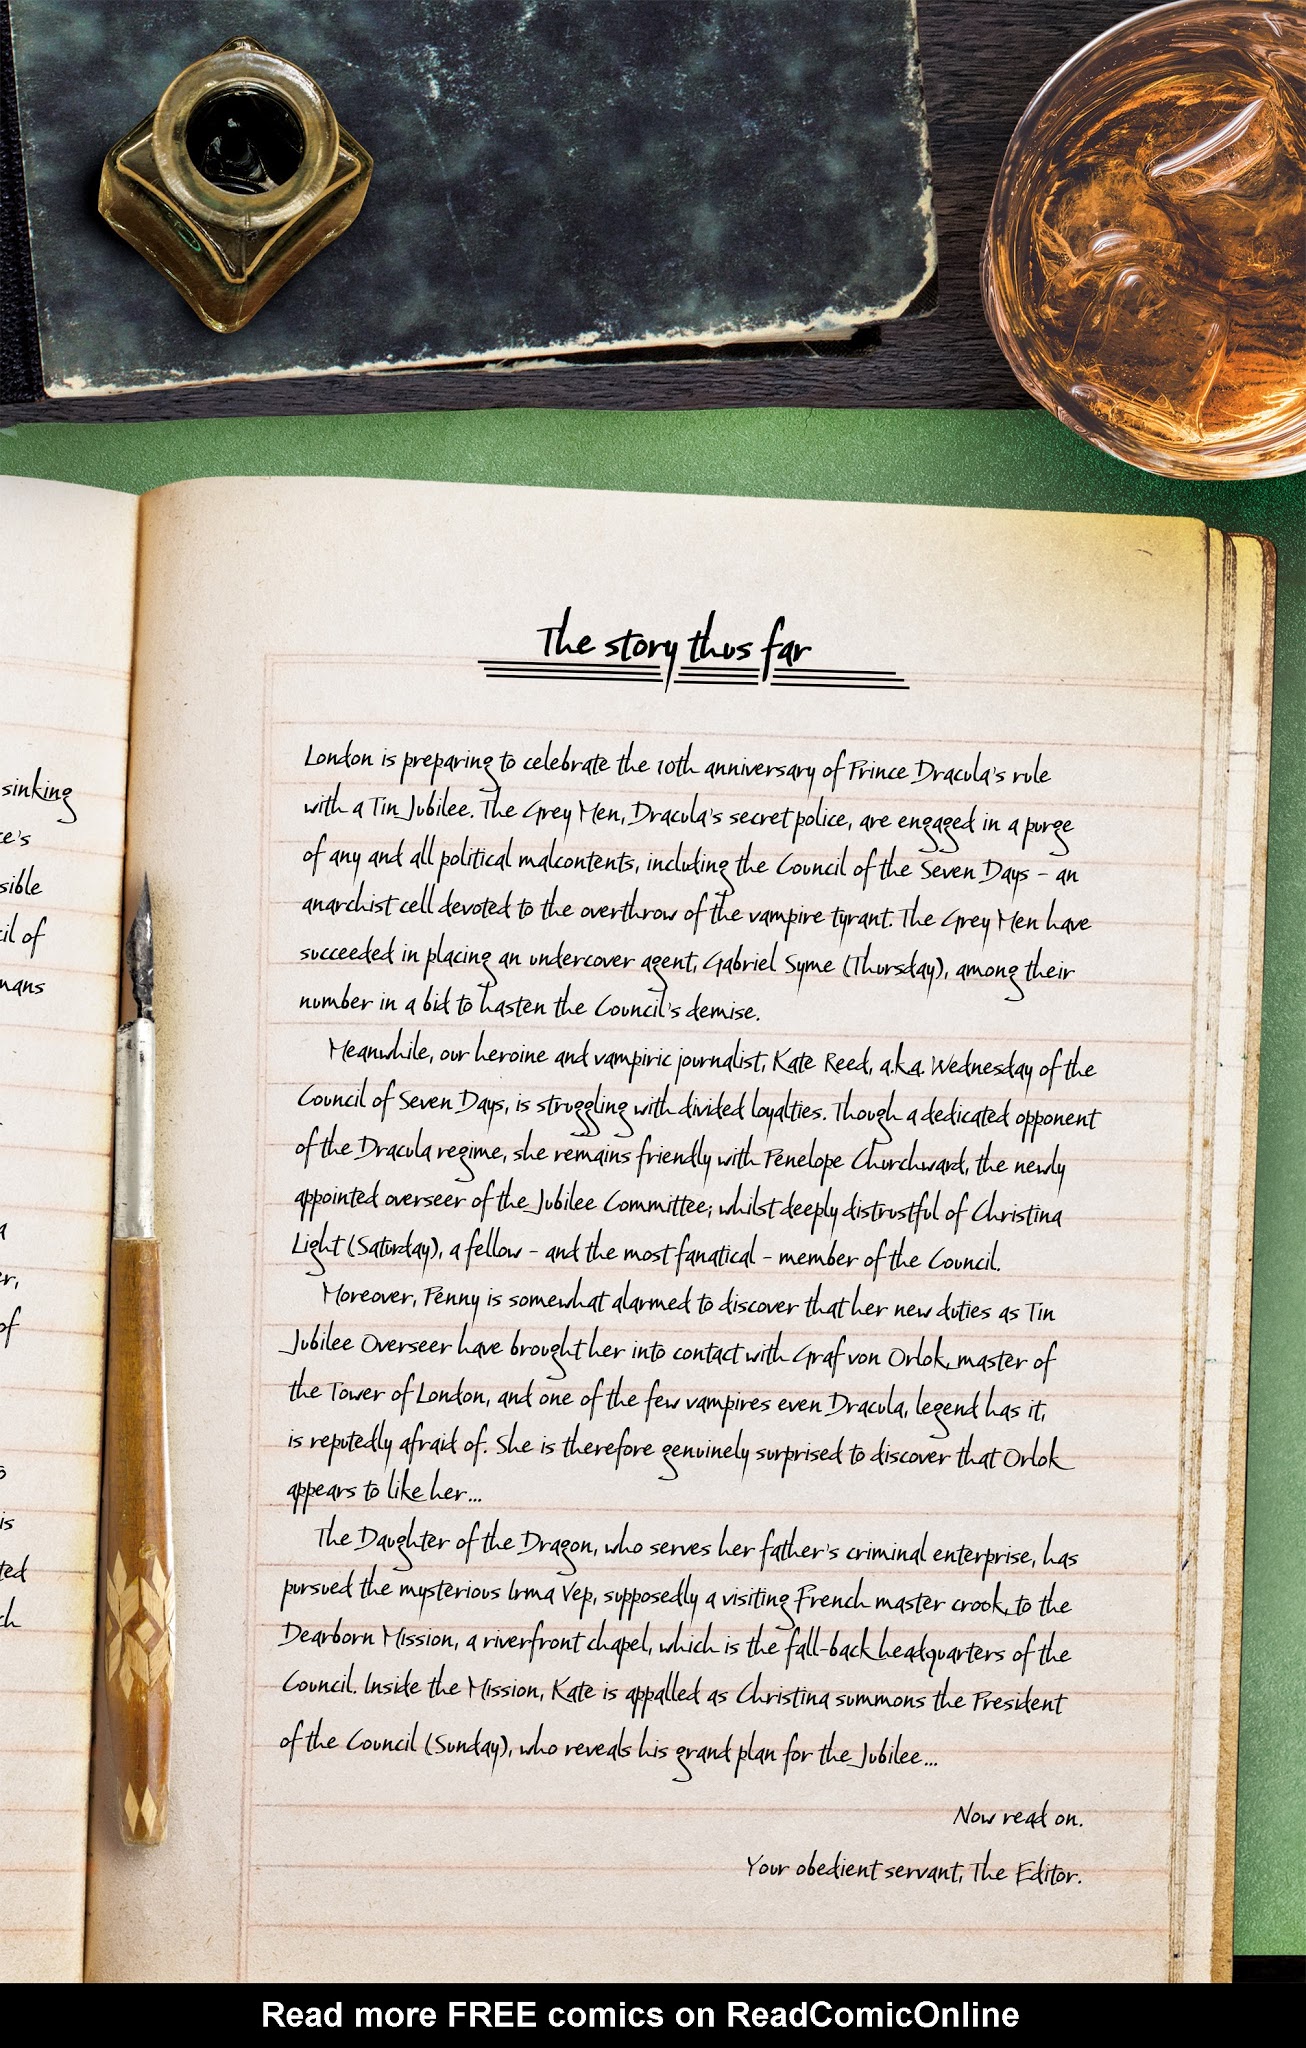 sinking
ce's
sible
cil of
mans
a
er,
of
is
ted
ch
The story thus far
London is preparing to celebrate the 10th anniversary of Prince Dracula's rule
with a Tin Jubilee. The Grey Men, Dracula's secret police, are engaged in a purge
of any and all political malcontents, including the Council of the Seven Days – an
anarchist cell devoted to the overthrow of the vampire tyrant. The Grey Men have
succeeded in placing an undercover agent, Gabriel Syme (Thursday), among their
number in a bid to hasten the Council's demise.
Meanwhile, our heroine and vampiric journalist, Kate Reed, a.k.a. Wednesday of the
Council of Seven Days, is struggling with divided loyalties. Though a dedicated opponent
of the Dracula regime, she remains friendly with Penelope Churchward, the newly
appointed overseer of the Jubilee Committee; whilst deeply distrustful of Christina
Light (Saturday), a fellow – and the most fanatical – member of the Council.
Moreover, Penny is somewhat alarmed to discover that her new duties as Tin
Jubilee Overseer have brought her into contact with Graf von Orlok, master of
the Tower of London, and one of the few vampires even Dracula, legend has it,
is reputedly afraid of. She is therefore genuinely surprised to discover that Orlok
appears to like her...
The Daughter of the Dragon, who serves her father's criminal enterprise, has
pursued the mysterious Irma Vep, supposedly a visiting French master crook, to the
Dearborn Mission, a riverfront chapel, which is the fall-back headquarters of the
Council. Inside the Mission, Kate is appalled as Christina summons the President
of the Council (Sunday), who reveals his grand plan for the Jubilee...
Now read on.
Your obedient servant, The Editor.
Read more FREE comics on ReadComicOnline